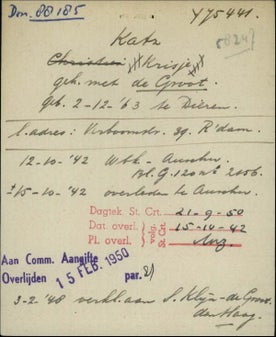 Don. 88185
Y75441.
5824
Katz
Christien Krisje
geh. met de Groot.
geb. 2-12-'63 te Dieren.
l. adres: Verboomstr. 39. R'dam.
12-10-'42 Wbk-Auschw.
Bl. G. 120 no 2056.
15-10-'42 overleden te Auschw.
Dagtek. St. Crt. 21-9-50
Dat. overl. volg. St. Crt 15-10-42
Pl. overl.
Aan Comm. Aangifte
Overlijden 15 FEB. 1950 par.
3-2-'48 verkl. aan S. Klijn-de Groot.
den Haag.